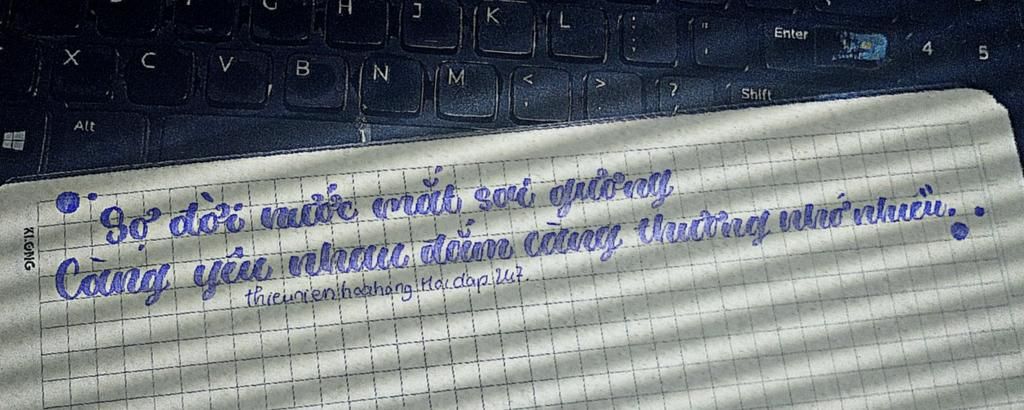 G H J K L : ; " ' Enter 4 5
X C V B N M < , > . ? Shift
Alt
KLONG
Sợ đời nước mắt soi gương
Càng yêu nhau đắm càng thương nhớ nhiều.
thieunien.hoahong.Hoidap247.